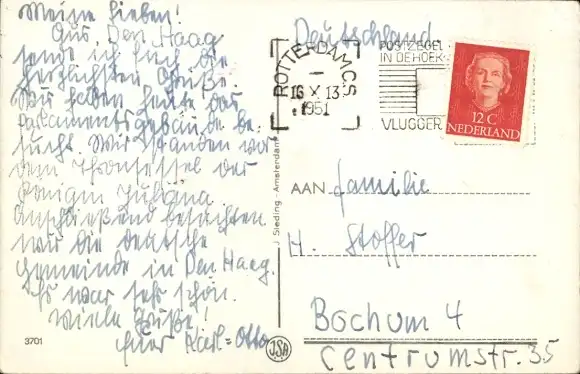 Meine Lieben!
Aus Den Haag
sende ich Euch die
herzlichsten Grüße.
Wir haben heute das
Parlamentsgebäude be-
sucht. Wir standen vor
dem Thronsessel der
Königin Juliana.
Anschließend besuchten
wir die deutsche
Gemeinde in Den Haag.
Es war sehr schön.
Viele Grüße!
Euer Karl=Otto
3701
J. Sleding - Amsterdam
JSA
Deutschland
ROTTERDAM C.S.
16 X 13
1951
POSTZEGEL
IN DE HOEK
VLUGGER
12 C
NEDERLAND
AAN Familie
H. Stoffer
Bochum 4
Centrumstr. 35